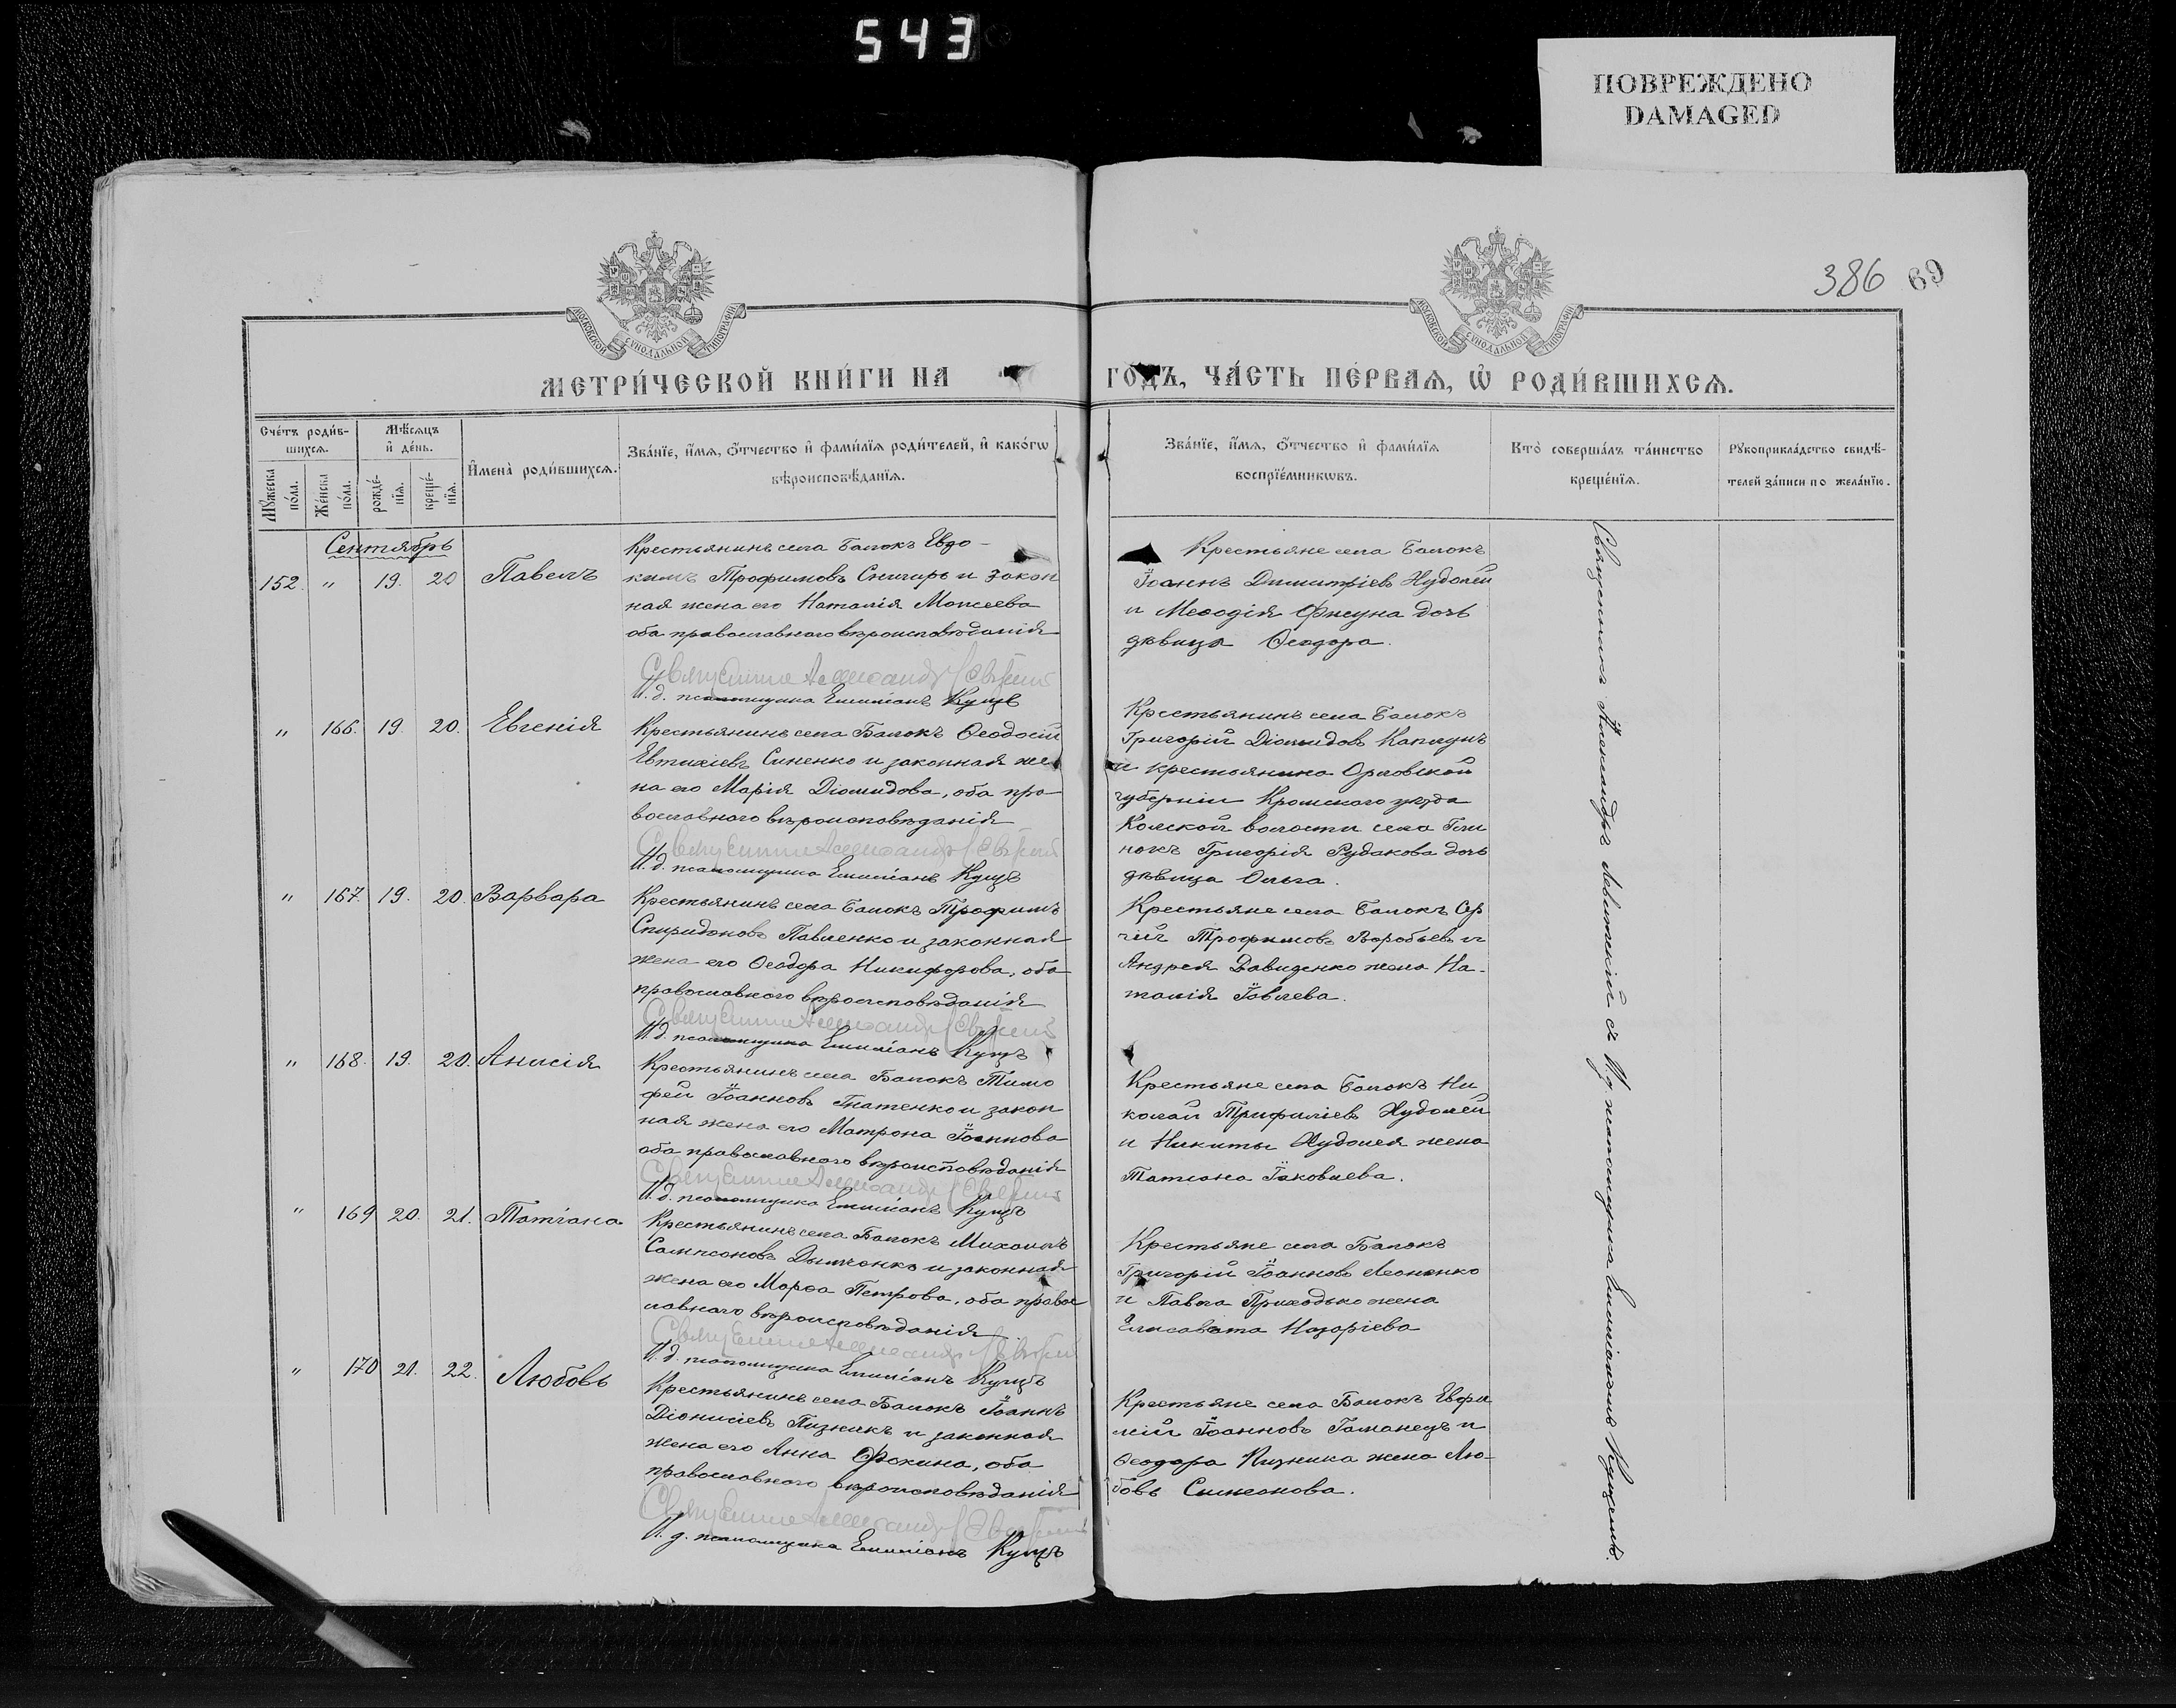 543
ПОВРЕЖДЕНО
DAMAGED
386 69
МОСКОВСКОЙ СѴНОДАЛЬНОЙ ТИПОГРАФІИ
МОСКОВСКОЙ СѴНОДАЛЬНОЙ ТИПОГРАФІИ
МЕТРИ́ЧЕСКОЙ КНИ́ГИ НА ГОДЪ, ЧА́СТЬ ПЕ́РВАѦ, Ѡ҆ РОДИ́ВШИХСѦ.
Сче́тъ роди́в-
шихсѧ.
Мѣ́сѧцъ
и҆ де́нь.
Мꙋ́жеска
по́ла.
Же́нска
по́ла.
рожде́-
нїѧ.
креще́-
нїѧ.
И҆мена̀ роди́вшихсѧ.
Зва́нїе, и҆́мѧ, ѻ҆́тчество и҆ фами́лїѧ роди́телей, и҆ како́гѡ
вѣроисповѣ́данїѧ.
Зва́нїе, и҆́мѧ, ѻ҆́тчество и҆ фами́лїѧ
воспрїе́мникѡвъ.
Кто̀ соверша́лъ та́инство
креще́нїѧ.
Рꙋкоприкла́дство свидѣ́-
телей за́писи по жела́нїю.
Сентябрь
152. " 19. 20 Павелъ
Крестьянинъ села Балокъ Евдо-
кимъ Трофимовъ Снигирь и закон
ная жена его Наталія Моисеева
оба православнаго вѣроисповѣданія
Священникъ Александръ Левитскій
И.д. псаломщика Емиліанъ Кущъ
Крестьяне села Балокъ
Іоаннъ Димитріевъ Худолей
и Меѳодія Фисуна дочь
дѣвица Ѳеодора.
" 166. 19. 20. Евгенія
Крестьянинъ села Балокъ Ѳеодосій
Евтихіевъ Синенко и законная же
на его Марія Діомидова, оба пра
вославнаго вѣроисповѣданія
Священникъ Александръ Левитскій
И.д. псаломщика Емиліанъ Кущъ
Крестьянинъ села Балокъ
Григорій Діомидовъ Каплунъ
и крестьянина Орловской
губерніи Кромскаго уѣзда
волости села Гли
нокъ Григорія Рудакова дочь
дѣвица Ольга.
" 167. 19. 20. Варвара
Крестьянинъ села Балокъ Трофимъ
Спиридоновъ Павленко и законная
жена его Ѳеодора Никифорова, оба
православнаго вѣроисповѣданія
Священникъ Александръ Левитскій
И.д. псаломщика Емиліанъ Кущъ
Крестьяне села Балокъ Сер
гій Трофимовъ Воробьевъ и
Андрея Давиденко жена На-
талія Іовлева.
" 168. 19. 20. Анисія
Крестьянинъ села Балокъ Тимо
фей Іоанновъ Гнатенко и закон
ная жена его Матрона Іоаннова
оба православнаго вѣроисповѣданія
Священникъ Александръ Левитскій
И.д. псаломщика Емиліанъ Кущъ
Крестьяне села Балокъ Ни
колай Трифиліевъ Худолей
и Никиты Худолея жена
Татіана Іаковлева.
" 169 20. 21. Татіана
Крестьянинъ села Балокъ Михаилъ
Сампсоновъ Дымченко и законная
жена его Марѳа Петрова, оба правос
лавнаго вѣроисповѣданія
Священникъ Александръ Левитскій
И.д. псаломщика Емиліанъ Кущъ
Крестьяне села Балокъ
Григорій Іоанновъ Леоненко
и Павла Приходько жена
Елисавета Назаріева
" 170 21. 22. Любовь
Крестьянинъ села Балокъ Іоаннъ
Діонисіевъ Пизникъ и законная
жена его Анна Фокина, оба
православнаго вѣроисповѣданія
Священникъ Александръ Левитскій
И.д. псаломщика Емиліанъ Кущъ
Крестьяне села Балокъ Евфи
мій Іоанновъ Гаманецъ и
Ѳеодора Пизника жена Лю-
бовь Симеонова.
Священникъ Александръ Левитскій съ И.д. псаломщика Емиліаномъ Кущемъ.